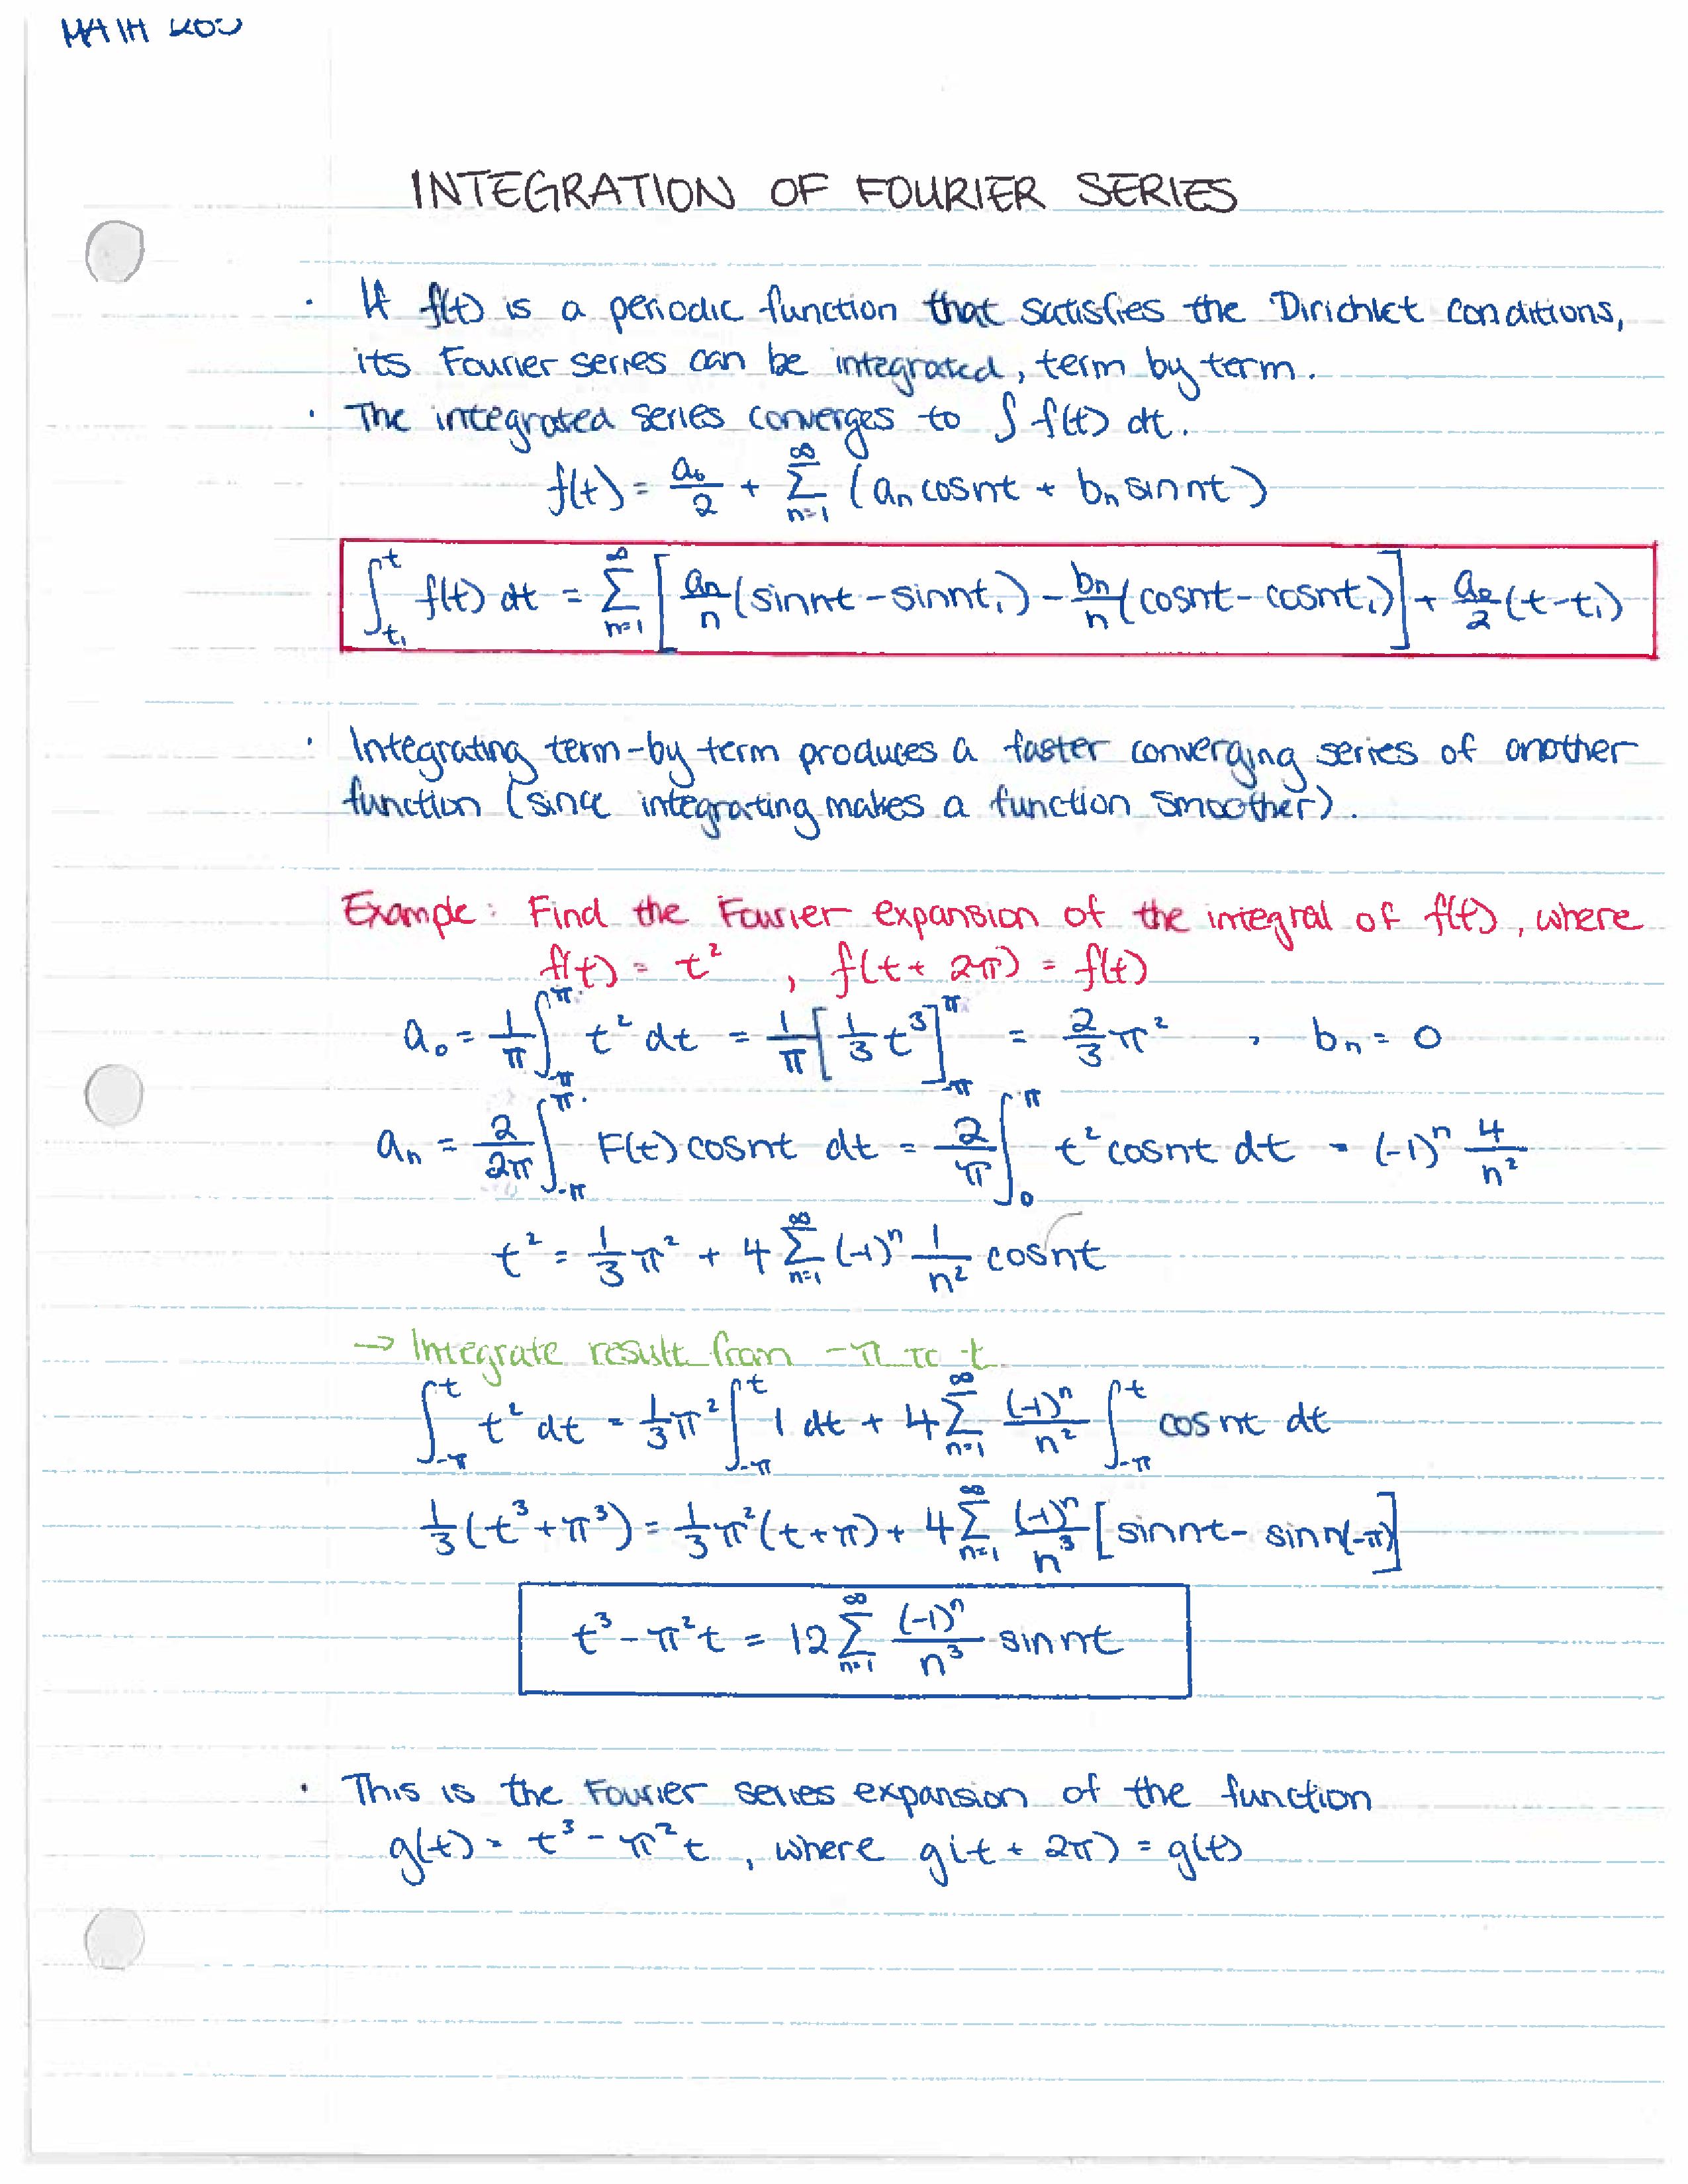 INTEGRATION OF FOURIER SERIES
· If f(t) is a periodic function that satisfies the Dirichlet conditions,
its Fourier series can be integrated, term by term.
· The integrated series converges to ∫ f(t) dt.
f(t) = a₀/2 + ∑_{n=1}^{∞} (aₙ cosnt + bₙ sinnt)
∫_{t₁}^{t} f(t) dt = ∑_{n=1}^{∞} [aₙ/n (sinnt - sinnt₁) - bₙ/n (cosnt - cosnt₁)] + a₀/2 (t-t₁)
· Integrating term-by term produces a faster converging series of another
function (since integrating makes a function smoother).
Example: Find the Fourier expansion of the integral of f(t), where
f(t) = t² , f(t + 2π) = f(t)
a₀ = 1/π ∫_{-π}^{π} t² dt = 1/π [1/3 t³]_{-π}^{π} = 2/3 π² , bₙ = 0
aₙ = 2/2π ∫_{-π}^{π} F(t) cosnt dt = 2/π ∫_{0}^{π} t² cosnt dt = (-1)ⁿ 4/n²
t² = 1/3 π² + 4 ∑_{n=1}^{∞} (-1)ⁿ 1/n² cosnt
→ Integrate result from -π to t
∫_{-π}^{t} t² dt = 1/3 π² ∫_{-π}^{t} 1 dt + 4 ∑_{n=1}^{∞} (-1)ⁿ/n² ∫_{-π}^{t} cosnt dt
1/3 (t³ + π³) = 1/3 π² (t + π) + 4 ∑_{n=1}^{∞} (-1)ⁿ/n³ [sinnt - sinn(-π)]
t³ - π²t = 12 ∑_{n=1}^{∞} (-1)ⁿ/n³ sinnt
· This is the Fourier series expansion of the function
g(t) = t³ - π²t , where g(t + 2π) = g(t)